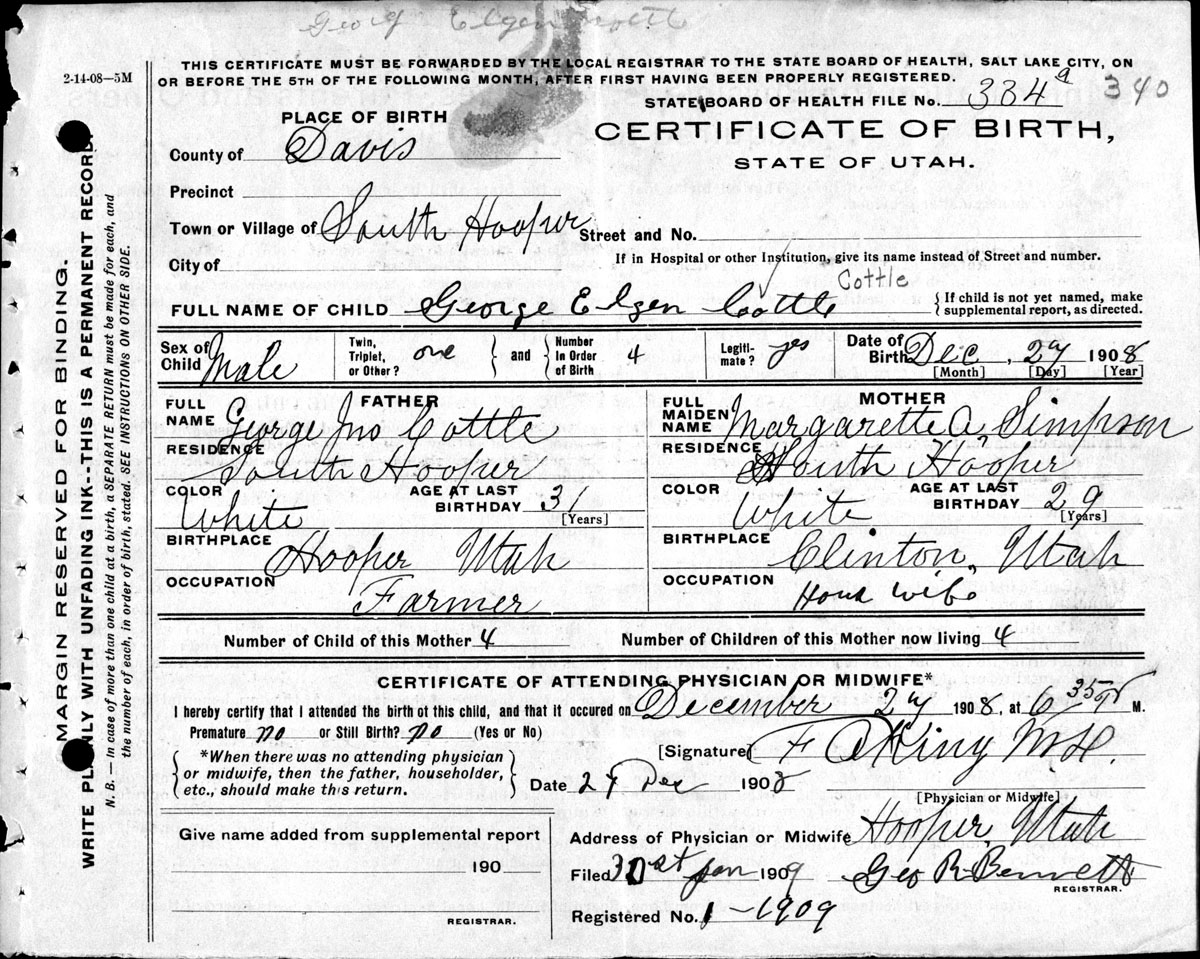 Geo Elgen Cottle
2-14-08—5M
THIS CERTIFICATE MUST BE FORWARDED BY THE LOCAL REGISTRAR TO THE STATE BOARD OF HEALTH, SALT LAKE CITY, ON
OR BEFORE THE 5TH OF THE FOLLOWING MONTH, AFTER FIRST HAVING BEEN PROPERLY REGISTERED.
STATE BOARD OF HEALTH FILE No. 334 a 340
PLACE OF BIRTH
CERTIFICATE OF BIRTH,
STATE OF UTAH.
County of Davis
Precinct
Town or Village of South Hooper Street and No.
City of If in Hospital or other Institution, give its name instead of Street and number.
Cottle
FULL NAME OF CHILD George Elgen Cottle { If child is not yet named, make supplemental report, as directed.
Sex of Child Male Twin, Triplet, or Other? one } and { Number In Order of Birth 4 Legiti- mate? yes Date of Birth Dec. 27 1908
[Month] [Day] [Year]
FATHER MOTHER
FULL NAME George Jno Cottle FULL MAIDEN NAME Margarette A. Simpson
RESIDENCE South Hooper RESIDENCE South Hooper
COLOR White AGE AT LAST BIRTHDAY 31 [Years] COLOR White AGE AT LAST BIRTHDAY 29 [Years]
BIRTHPLACE Hooper Utah BIRTHPLACE Clinton, Utah
OCCUPATION Farmer OCCUPATION Hous wife
Number of Child of this Mother 4 Number of Children of this Mother now living 4
CERTIFICATE OF ATTENDING PHYSICIAN OR MIDWIFE*
I hereby certify that I attended the birth of this child, and that it occured on December 27 1908, at 6 35 M.
Premature no or Still Birth? no (Yes or No)
{ *When there was no attending physician
or midwife, then the father, householder,
etc., should make this return. }
[Signature] King M.D.
Date 27 Dec 1908
[Physician or Midwife]
Give name added from supplemental report
190
REGISTRAR.
Address of Physician or Midwife Hooper, Utah
Filed 1st Jan 1909 Geo R Bennett
REGISTRAR.
Registered No. 1-1909
MARGIN RESERVED FOR BINDING.
WRITE PLAINLY WITH UNFADING INK--THIS IS A PERMANENT RECORD.
N. B. — In case of more than one child at a birth, a SEPARATE RETURN must be made for each, and
the number of each, in order of birth, stated. SEE INSTRUCTIONS ON OTHER SIDE.